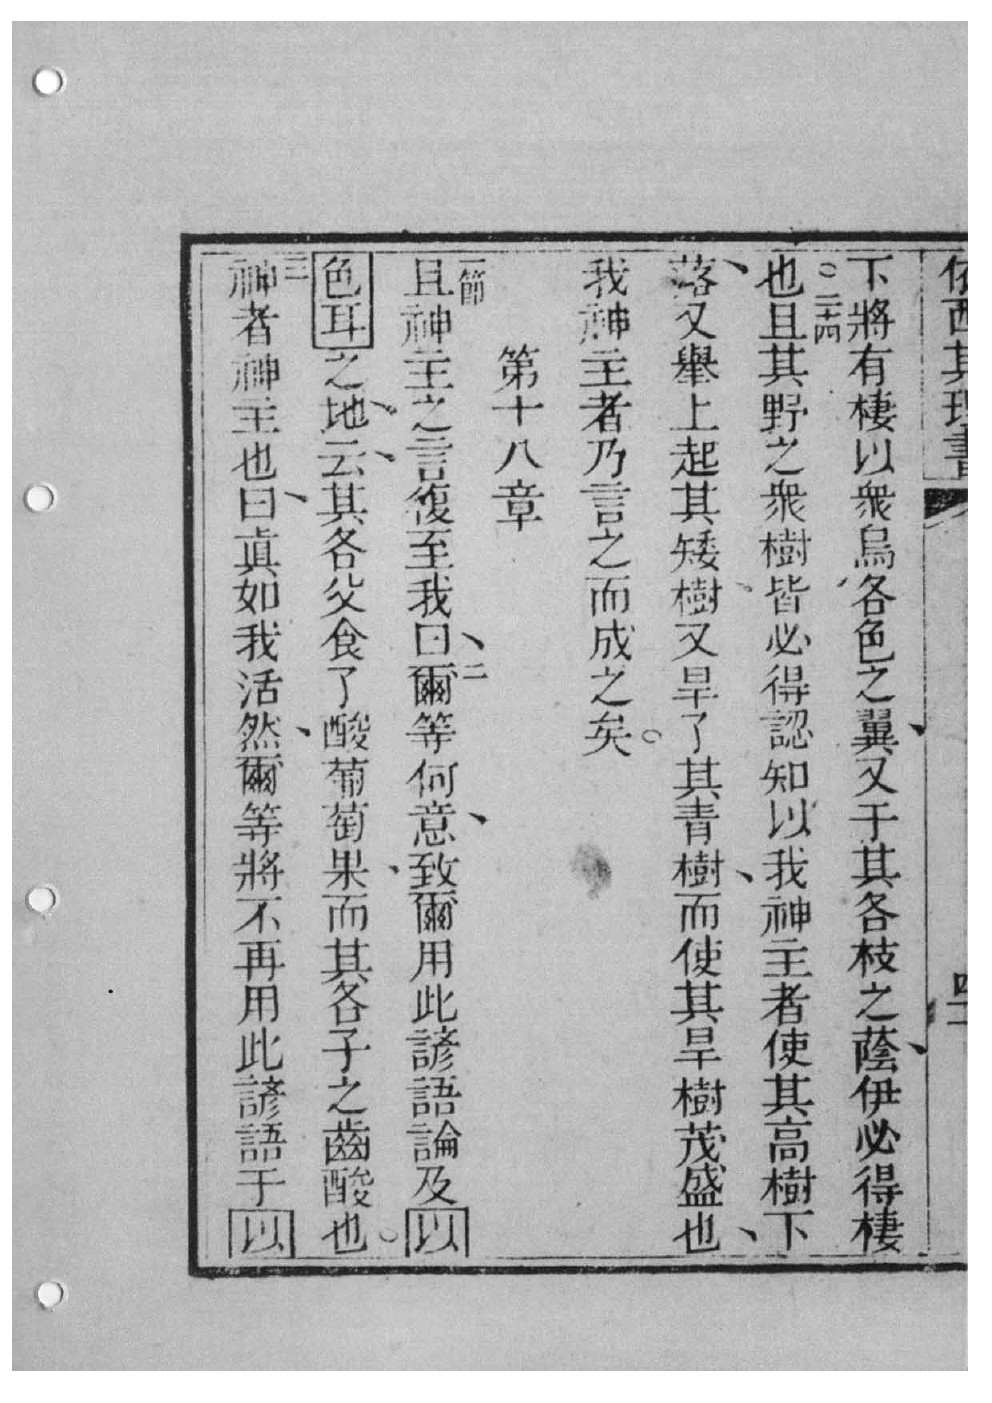 依西其理書
下將有棲以衆鳥各色之翼、又于其各枝之蔭、伊必得棲
也。二十四且其野之衆樹皆必得認知以我神主者使其高樹下、
落、又舉上起其矮樹、又旱了其青樹、而使其旱樹茂盛也、
我神主者乃言之而成之矣。
第十八章
一節且神主之言復至我曰、二爾等何意、致爾用此諺語論及以
色耳之地、云、其各父食了酸葡萄果、而其各子之齒酸也。
三神者神主也曰、眞如我活然、爾等將不再用此諺語于以